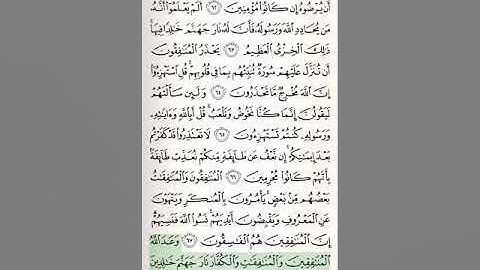 أَن يُرْضُوهُ إِن كَانُوا۟ مُؤْمِنِينَ ٦٢ أَلَمْ يَعْلَمُوٓا۟ أَنَّهُۥ
مَن يُحَادِدِ ٱللَّهَ وَرَسُولَهُۥ فَأَنَّ لَهُۥ نَارَ جَهَنَّمَ خَـٰلِدًا فِيهَا ۚ
ذَٰلِكَ ٱلْخِزْىُ ٱلْعَظِيمُ ٦٣ يَحْذَرُ ٱلْمُنَـٰفِقُونَ
أَن تُنَزَّلَ عَلَيْهِمْ سُورَةٌ تُنَبِّئُهُم بِمَا فِى قُلُوبِهِمْ ۚ قُلِ ٱسْتَهْزِءُوٓا۟
إِنَّ ٱللَّهَ مُخْرِجٌ مَّا تَحْذَرُونَ ٦٤ وَلَئِن سَأَلْتَهُمْ
لَيَقُولُنَّ إِنَّمَا كُنَّا نَخُوضُ وَنَلْعَبُ ۚ قُلْ أَبِٱللَّهِ وَءَايَـٰتِهِۦ
وَرَسُولِهِۦ كُنتُمْ تَسْتَهْزِءُونَ ٦٥ لَا تَعْتَذِرُوا۟ قَدْ كَفَرْتُم
بَعْدَ إِيمَـٰنِكُمْ ۚ إِن نَّعْفُ عَن طَآئِفَةٍ مِّنكُمْ نُعَذِّبْ طَآئِفَةًۢ
بِأَنَّهُمْ كَانُوا۟ مُجْرِمِينَ ٦٦ ٱلْمُنَـٰفِقُونَ وَٱلْمُنَـٰفِقَـٰتُ
بَعْضُهُم مِّنۢ بَعْضٍ ۚ يَأْمُرُونَ بِٱلْمُنكَرِ وَيَنْهَوْنَ
عَنِ ٱلْمَعْرُوفِ وَيَقْبِضُونَ أَيْدِيَهُمْ ۚ نَسُوا۟ ٱللَّهَ فَنَسِيَهُمْ ۗ
إِنَّ ٱلْمُنَـٰفِقِينَ هُمُ ٱلْفَـٰسِقُونَ ٦٧ وَعَدَ ٱللَّهُ
ٱلْمُنَـٰفِقِينَ وَٱلْمُنَـٰفِقَـٰتِ وَٱلْكُفَّارَ نَارَ جَهَنَّمَ خَـٰلِدِينَ